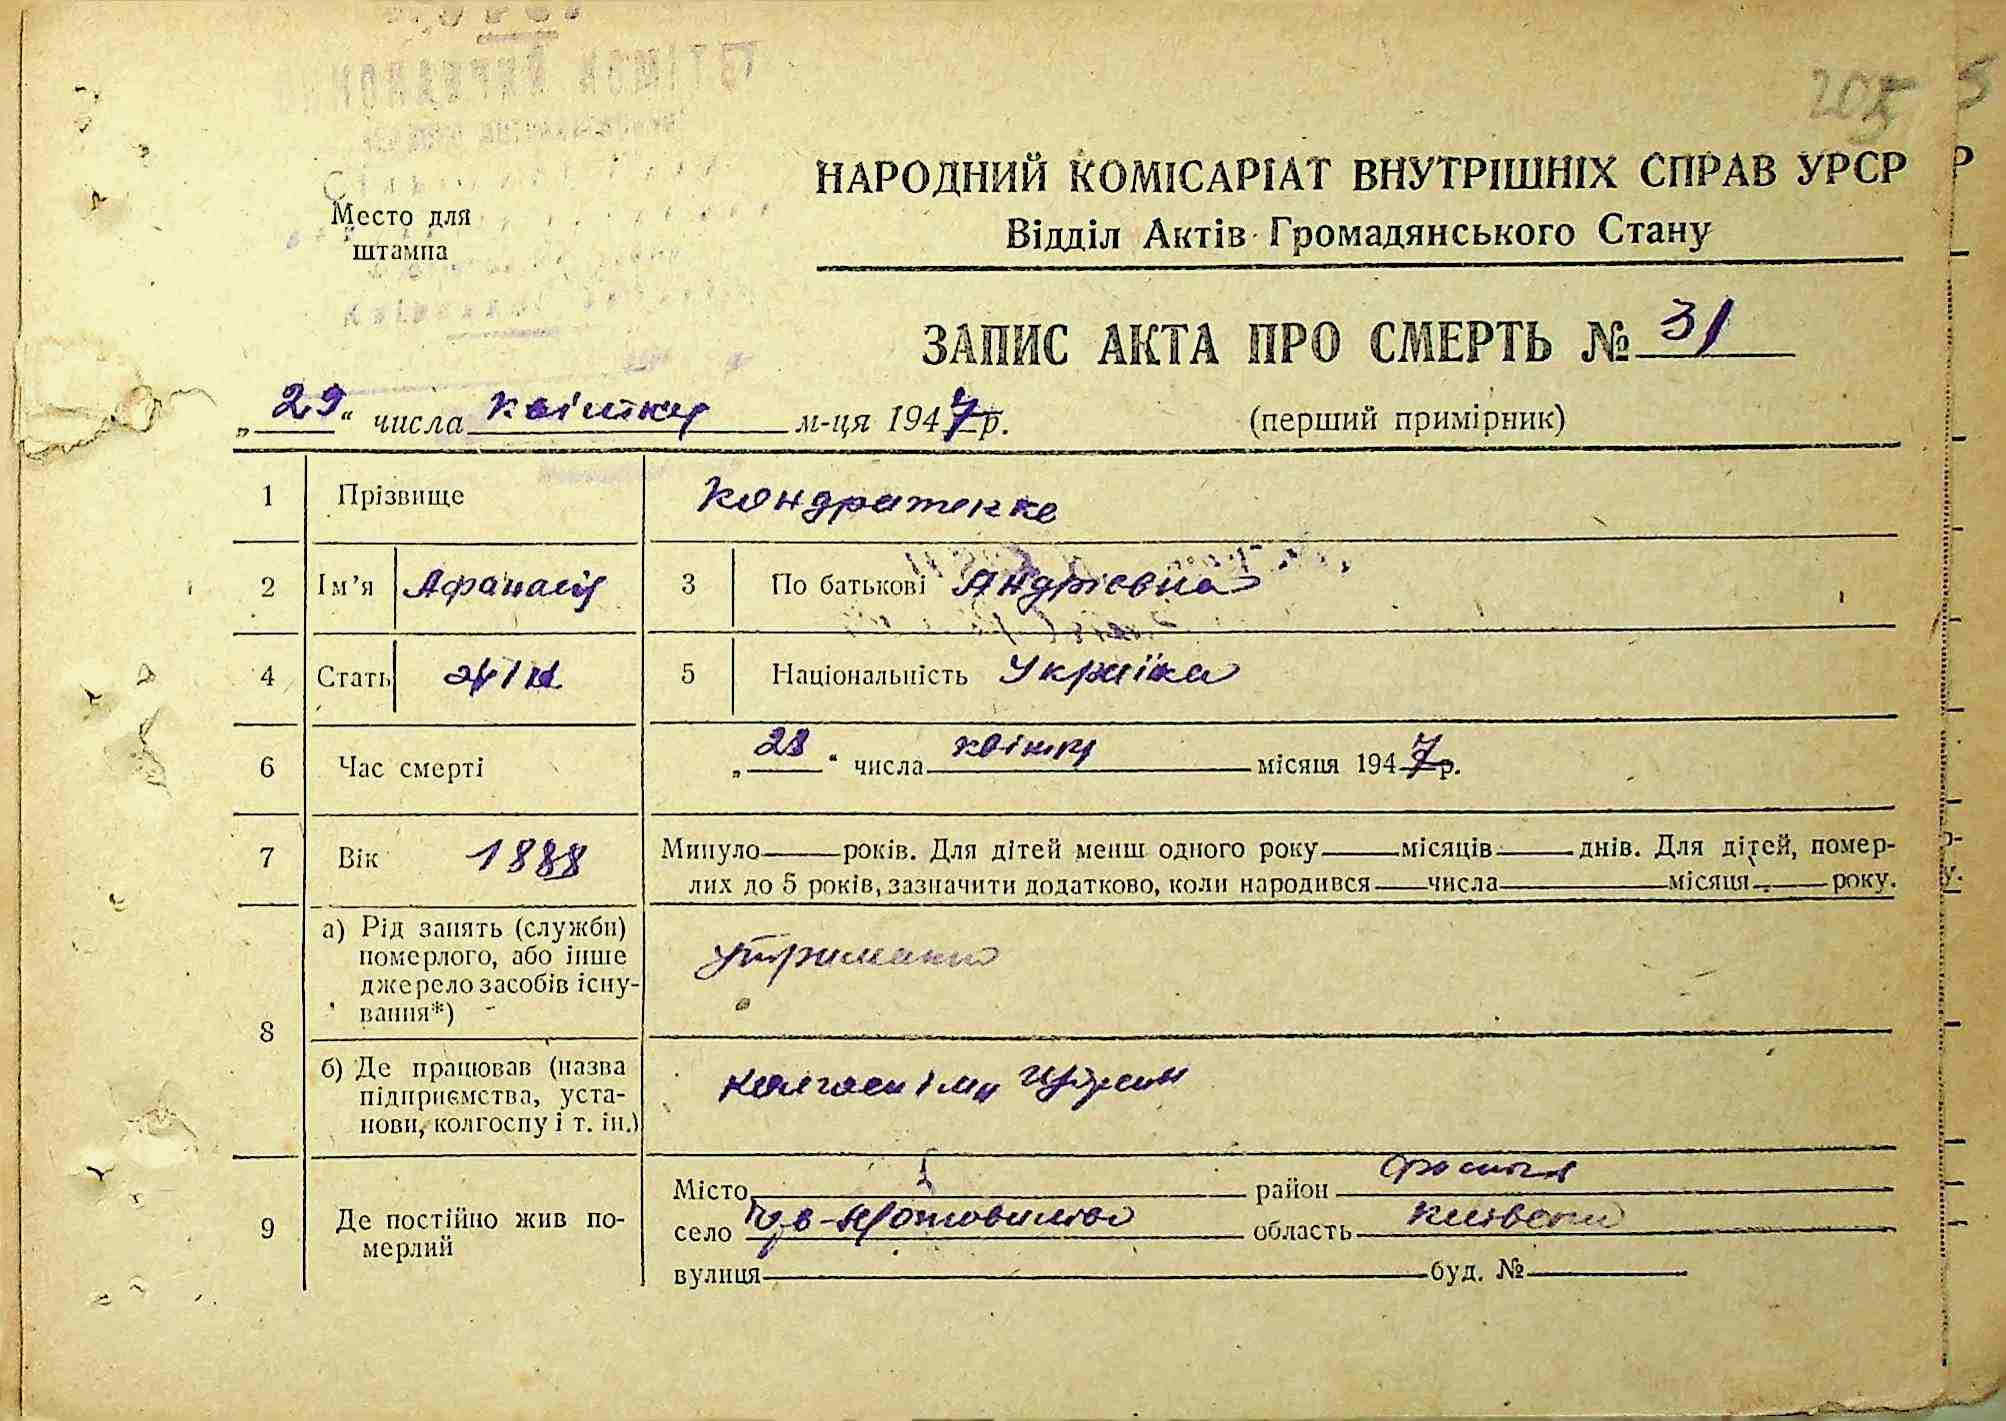 205
НАРОДНИЙ КОМІСАРІАТ ВНУТРІШНІХ СПРАВ УРСР
Відділ Актів Громадянського Стану
Место для
штампа
ЗАПИС АКТА ПРО СМЕРТЬ № 31
„29“ числа квітня м-ця 1947 р. (перший примірник)
1 Прізвище Кондратенко
2 Ім’я 3 По батькові Андрієвна
4 Стать 5 Національність
6 Час смерті „28“ числа квітня місяця 1947 р.
7 Вік 1888 Минуло років. Для дітей менш одного року місяців днів. Для дітей, помер-
лих до 5 років, зазначити додатково, коли народився числа місяця року.
8 а) Рід занять (служби)
померлого, або інше
джерело засобів існу-
вання*)
утриманка
б) Де працював (назва
підприємства, уста-
нови, колгоспу і т. ін.)
колгосп
9 Де постійно жив по-
мерлий
Місто район
село область
вулиця буд. №